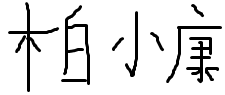 柏小康